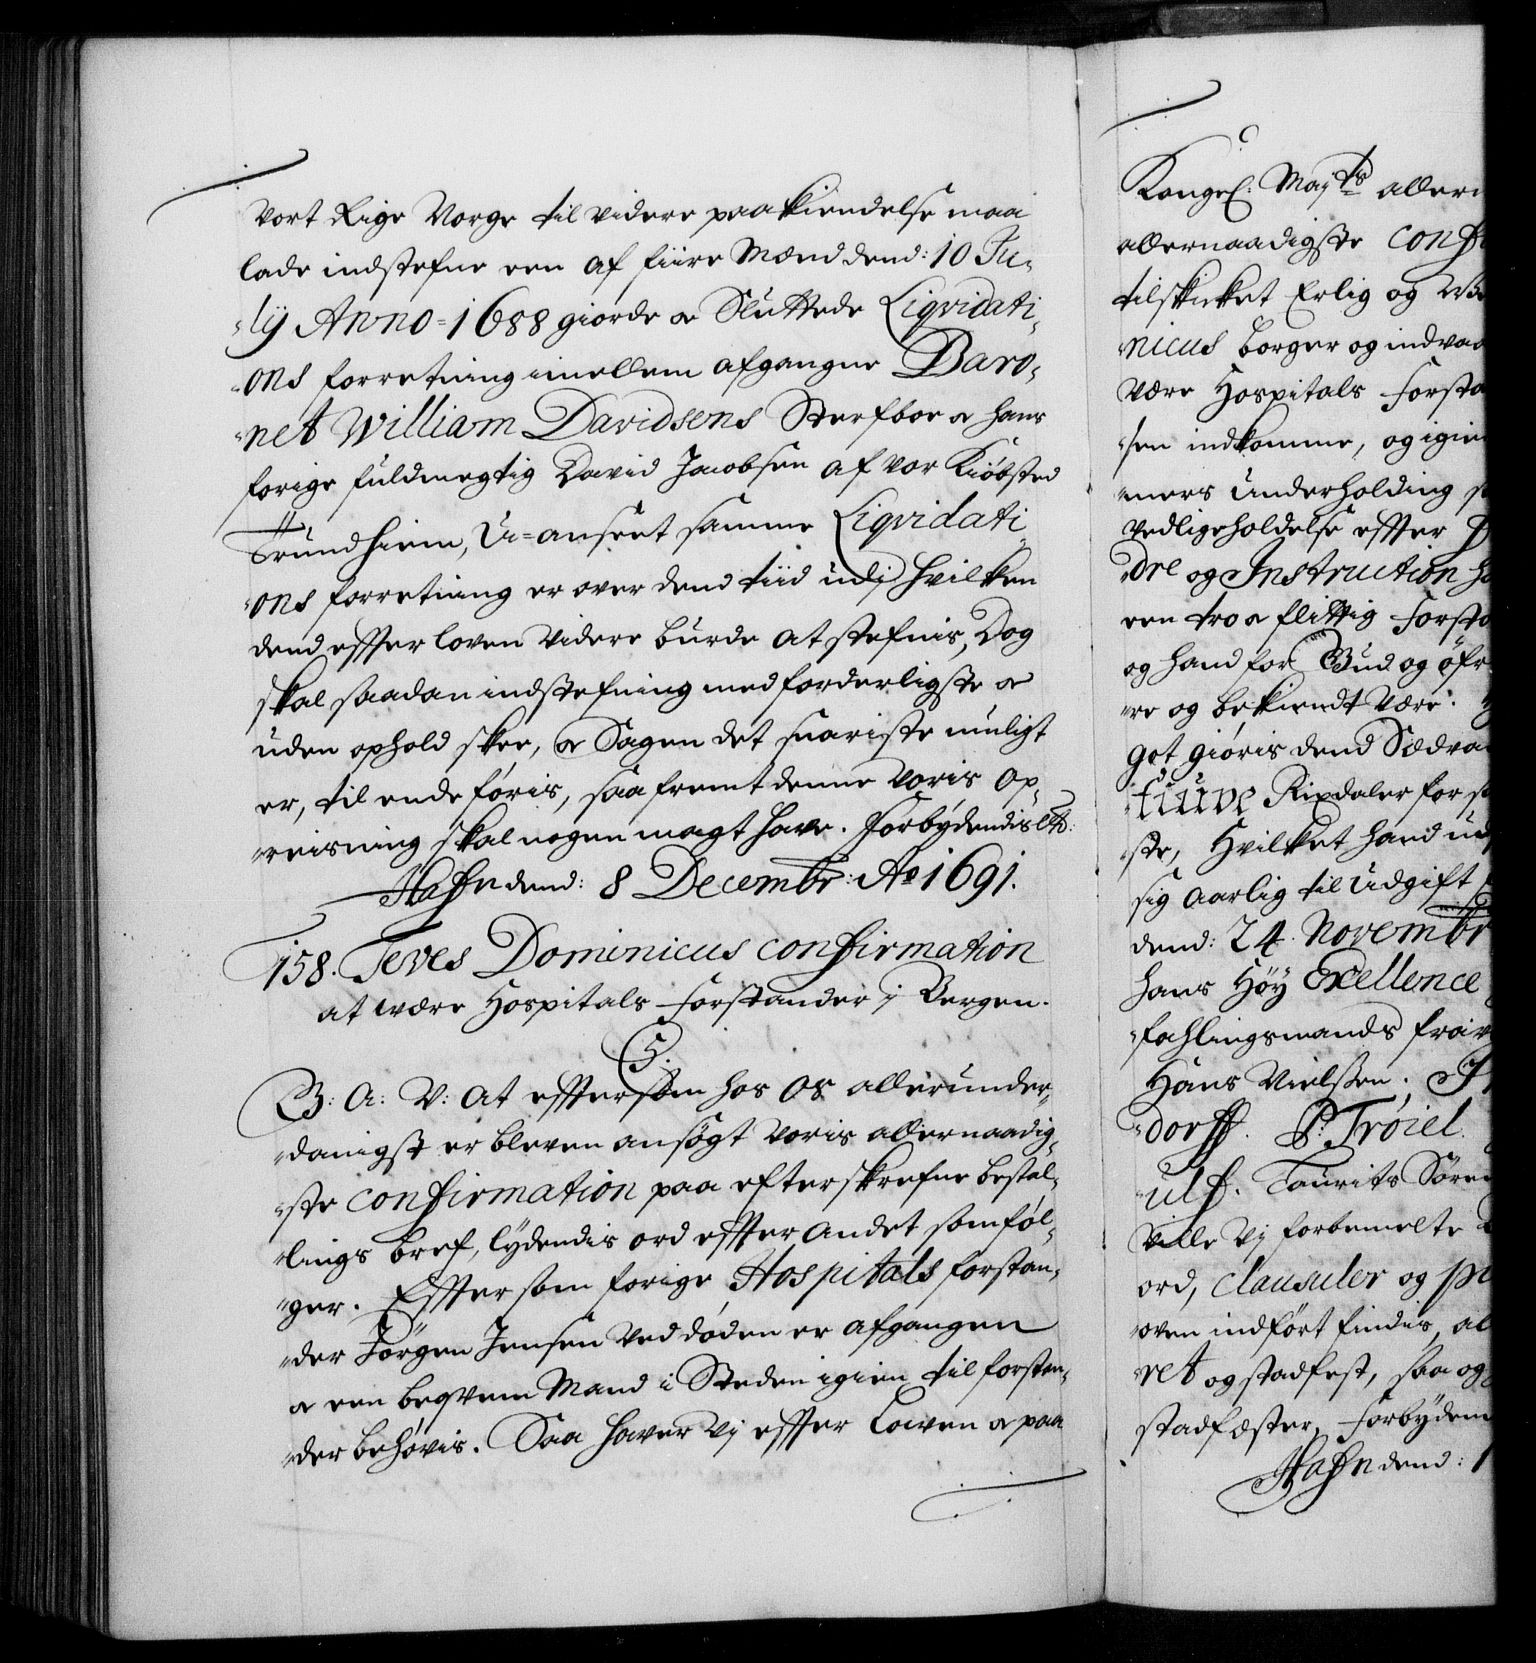 Vort Rige Norge til videre paakiendelse maa
lade indstefne een af fiire Mænd dend: 10 Ju-
-lÿ Anno=1688 giorde & Sluttede Liqvidati-
-ons forretning imellem afgangne Baro-
-net William Davidsens Sterfboe & hans
forige fuldmegtig David Jacobsen af vor Kiöbsted
Trundhiem, U=anseet samme Liqvidati-
-ons forretning er over dend tiid udj hvilken
dend effter loven videre burde at stefnis, Dog
skal saadan indstefning med forderligste &
uden ophold skee, & Sagen det snariste muligt
er, til ende föris, saafremt denne voris op-
-reisning skal nogen magt have. Forbÿdendis etc:
Hafn dend: 8 Decembr: Ao 1691.
158. Teves Dominicus confirmation
at være Hospitals Forstander j Bergen.
C5.
G: A: V: At efftersom hos Os allerunder-
-danigst er bleven ansögt Voris allernaadig-
-ste confirmation paa efterskrefne bestal-
-lings bref, lÿdendis ord effter andet som föl-
-ger. Efftersom forige Hospitals forstan-
-der Jörgen Jensen ved döden er afgangen
& een beqvem Mand i Steden igien til forstan-
-der behövis. Saa haver Vj effter Loven & paa
Kongel: Majts allern
allernaadigste conf
tilskicket Erlig og V
-nicus borger og indvaa
være Hospitals Forsta
-sen indkomme, og igien
-mers Underholding s
vedligeholdelse effter
-dre og Instruction h
een tro & flittig Forsta
og hand for Gud og öfr
-re og bekiendt være.
get giöris dend Sædva
tiuve Rixdaler for s
-ste, Hvilket hand ud
sig aarlig til Udgift
dend: 24. Novembr
hans Höÿ Excellence
-fahlingsmands frav
Hans Nielsen.
-dorff. P: Tröiel.
-ulf. Laurits Sören
Ville Vj forbemelte
ord, clausuler og p
-oven indfört findis, al
-ret og stadfest, saa og
stadfæster, Forbÿden
Hafn dend: 1